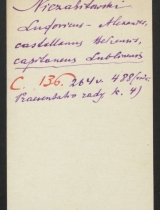 Niezabitowski
Ludovicus - Alexander,
castellanus Belzensis,
capitaneus Lublinensis
C. 136. 264 v. 488
Praesentatio rady k. 4)